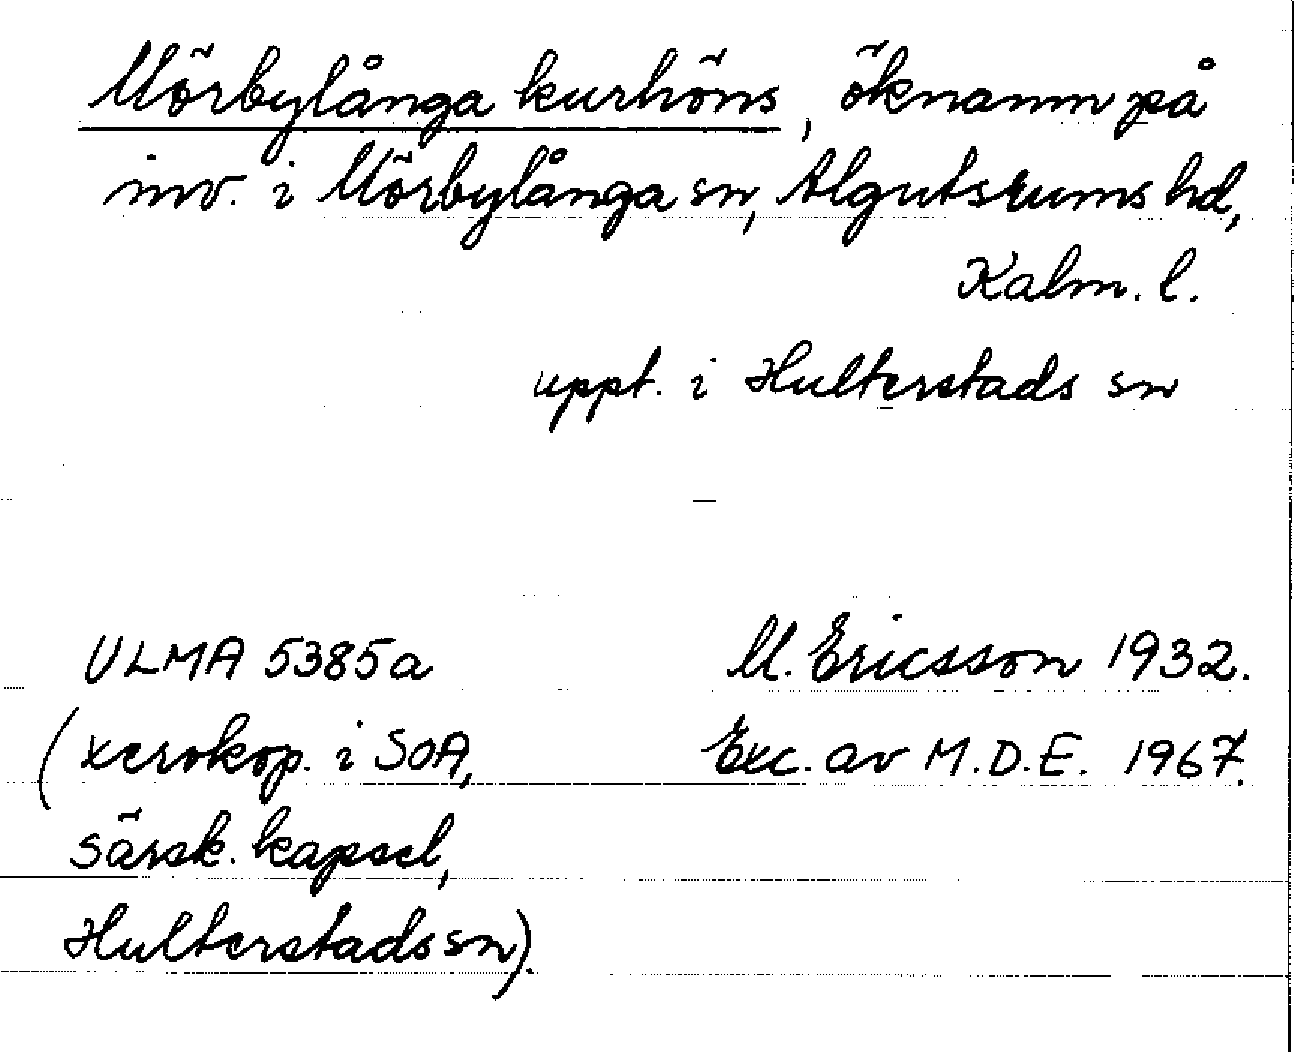 Mörbylånga kurhöns, öknamn på
inv. i Mörbylånga sn, Algutsrums hd,
Kalm. l.
uppt. i Hulterstads sn
ULMA 5385a M. Ericsson 1932.
(xerokop. i SOA, Exc. av M.D.E. 1967.
särsk. kapsel,
Hulterstads sn).